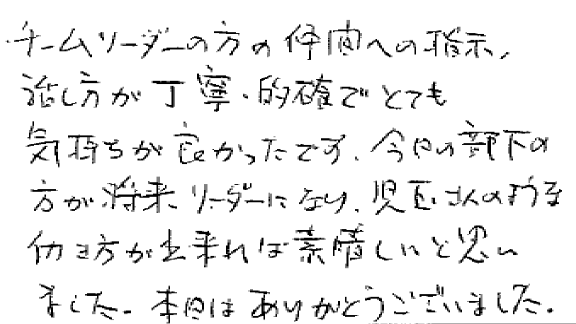 チームリーダーの方の仲間への指示、
話し方が丁寧・的確でとても
気持ちが良かったです、今日の部下の
方が将来リーダーになり、児玉さんのような
働き方が出来れば素晴しいと思い
ました。本日はありがとうございました。